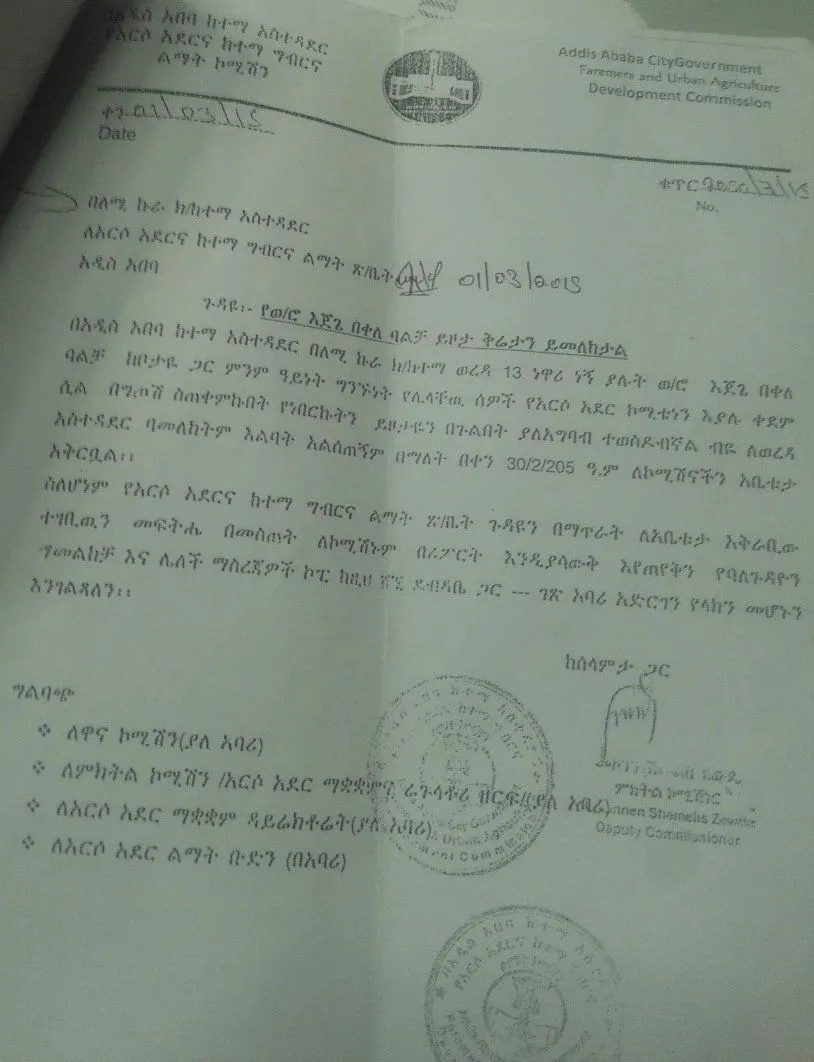 በአዲስ አበባ ከተማ አስተዳደር
የአርሶ አደርና ከተማ ግብርና
ልማት ኮሚሽን
Addis Ababa CityGovernment
Faremers and Urban Agriculture
Development Commission
ቀን 01/03/15
Date
ቁጥር
No.
በለሚ ኩራ ክ/ከተማ አስተዳደር
ለአርሶ አደርና ከተማ ግብርና ልማት ጽ/ቤት
01/03/2015
አዲስ አበባ
ጉዳዩ፡- የወ/ሮ እጅጌ በቀለ ባልቻ ይዞታ ቅሬታን ይመለከታል
በአዲስ አበባ ከተማ አስተዳደር በለሚ ኩራ ክ/ከተማ ወረዳ 13 ነዋሪ ነኝ ያሉት ወ/ሮ እጅጌ በቀለ
ባልቻ ከቦታዬ ጋር ምንም ዓይነት ግንኙነት የሌላቸዉ ሰዎች የአርሶ አደር ኮሚቴነን እያሉ ቀደም
ሲል በግጦሽ ስጠቀምኩበት የነበርኩትን ይዞታዬን በጉልበት ያለአግባብ ተወስዶብኛል ብዬ ለወረዳ
አስተዳደር ባመለክትም እልባት አልሰጠኝም በማለት በቀን 30/2/205 ዓ.ም ለኮሚሽናችን አቤቱታ
አቅርቧል፡፡
ስለሆነም የአርሶ አደርና ከተማ ግብርና ልማት ጽ/ቤት ጉዳዩን በማጥራት ለአቤቱታ አቅራቢው
ተገቢዉን መፍትሔ በመስጠት ለኮሚሽኑም በሪፖርት እንዲያሳውቅ እየጠየቅን የባለጉዳዮን
ማመልከቻ እና ሌሎች ማስረጃዎች ኮፒ ከዚህ ሸኚ ደብዳቤ ጋር --- ገጽ አባሪ አድርገን የላክን መሆኑን
እንገልጻለን፡፡
ከሰላምታ ጋር
ምክትል ኮሚሽነር
Shemelis Zewdie
Deputy Commissioner
ግልባጭ
❖ ለዋና ኮሚሽን(ያለ አባሪ)
❖ ለምክትል ኮሚሽን /አርሶ አደር ማቋቋምና ሬጉላቶሪ ዘርፍ/(ያለ አባሪ)
❖ ለአርሶ አደር ማቋቋም ዳይሬክቶሬት(ያለ አባሪ)
❖ ለአርሶ አደር ልማት ቡድን (በአባሪ)